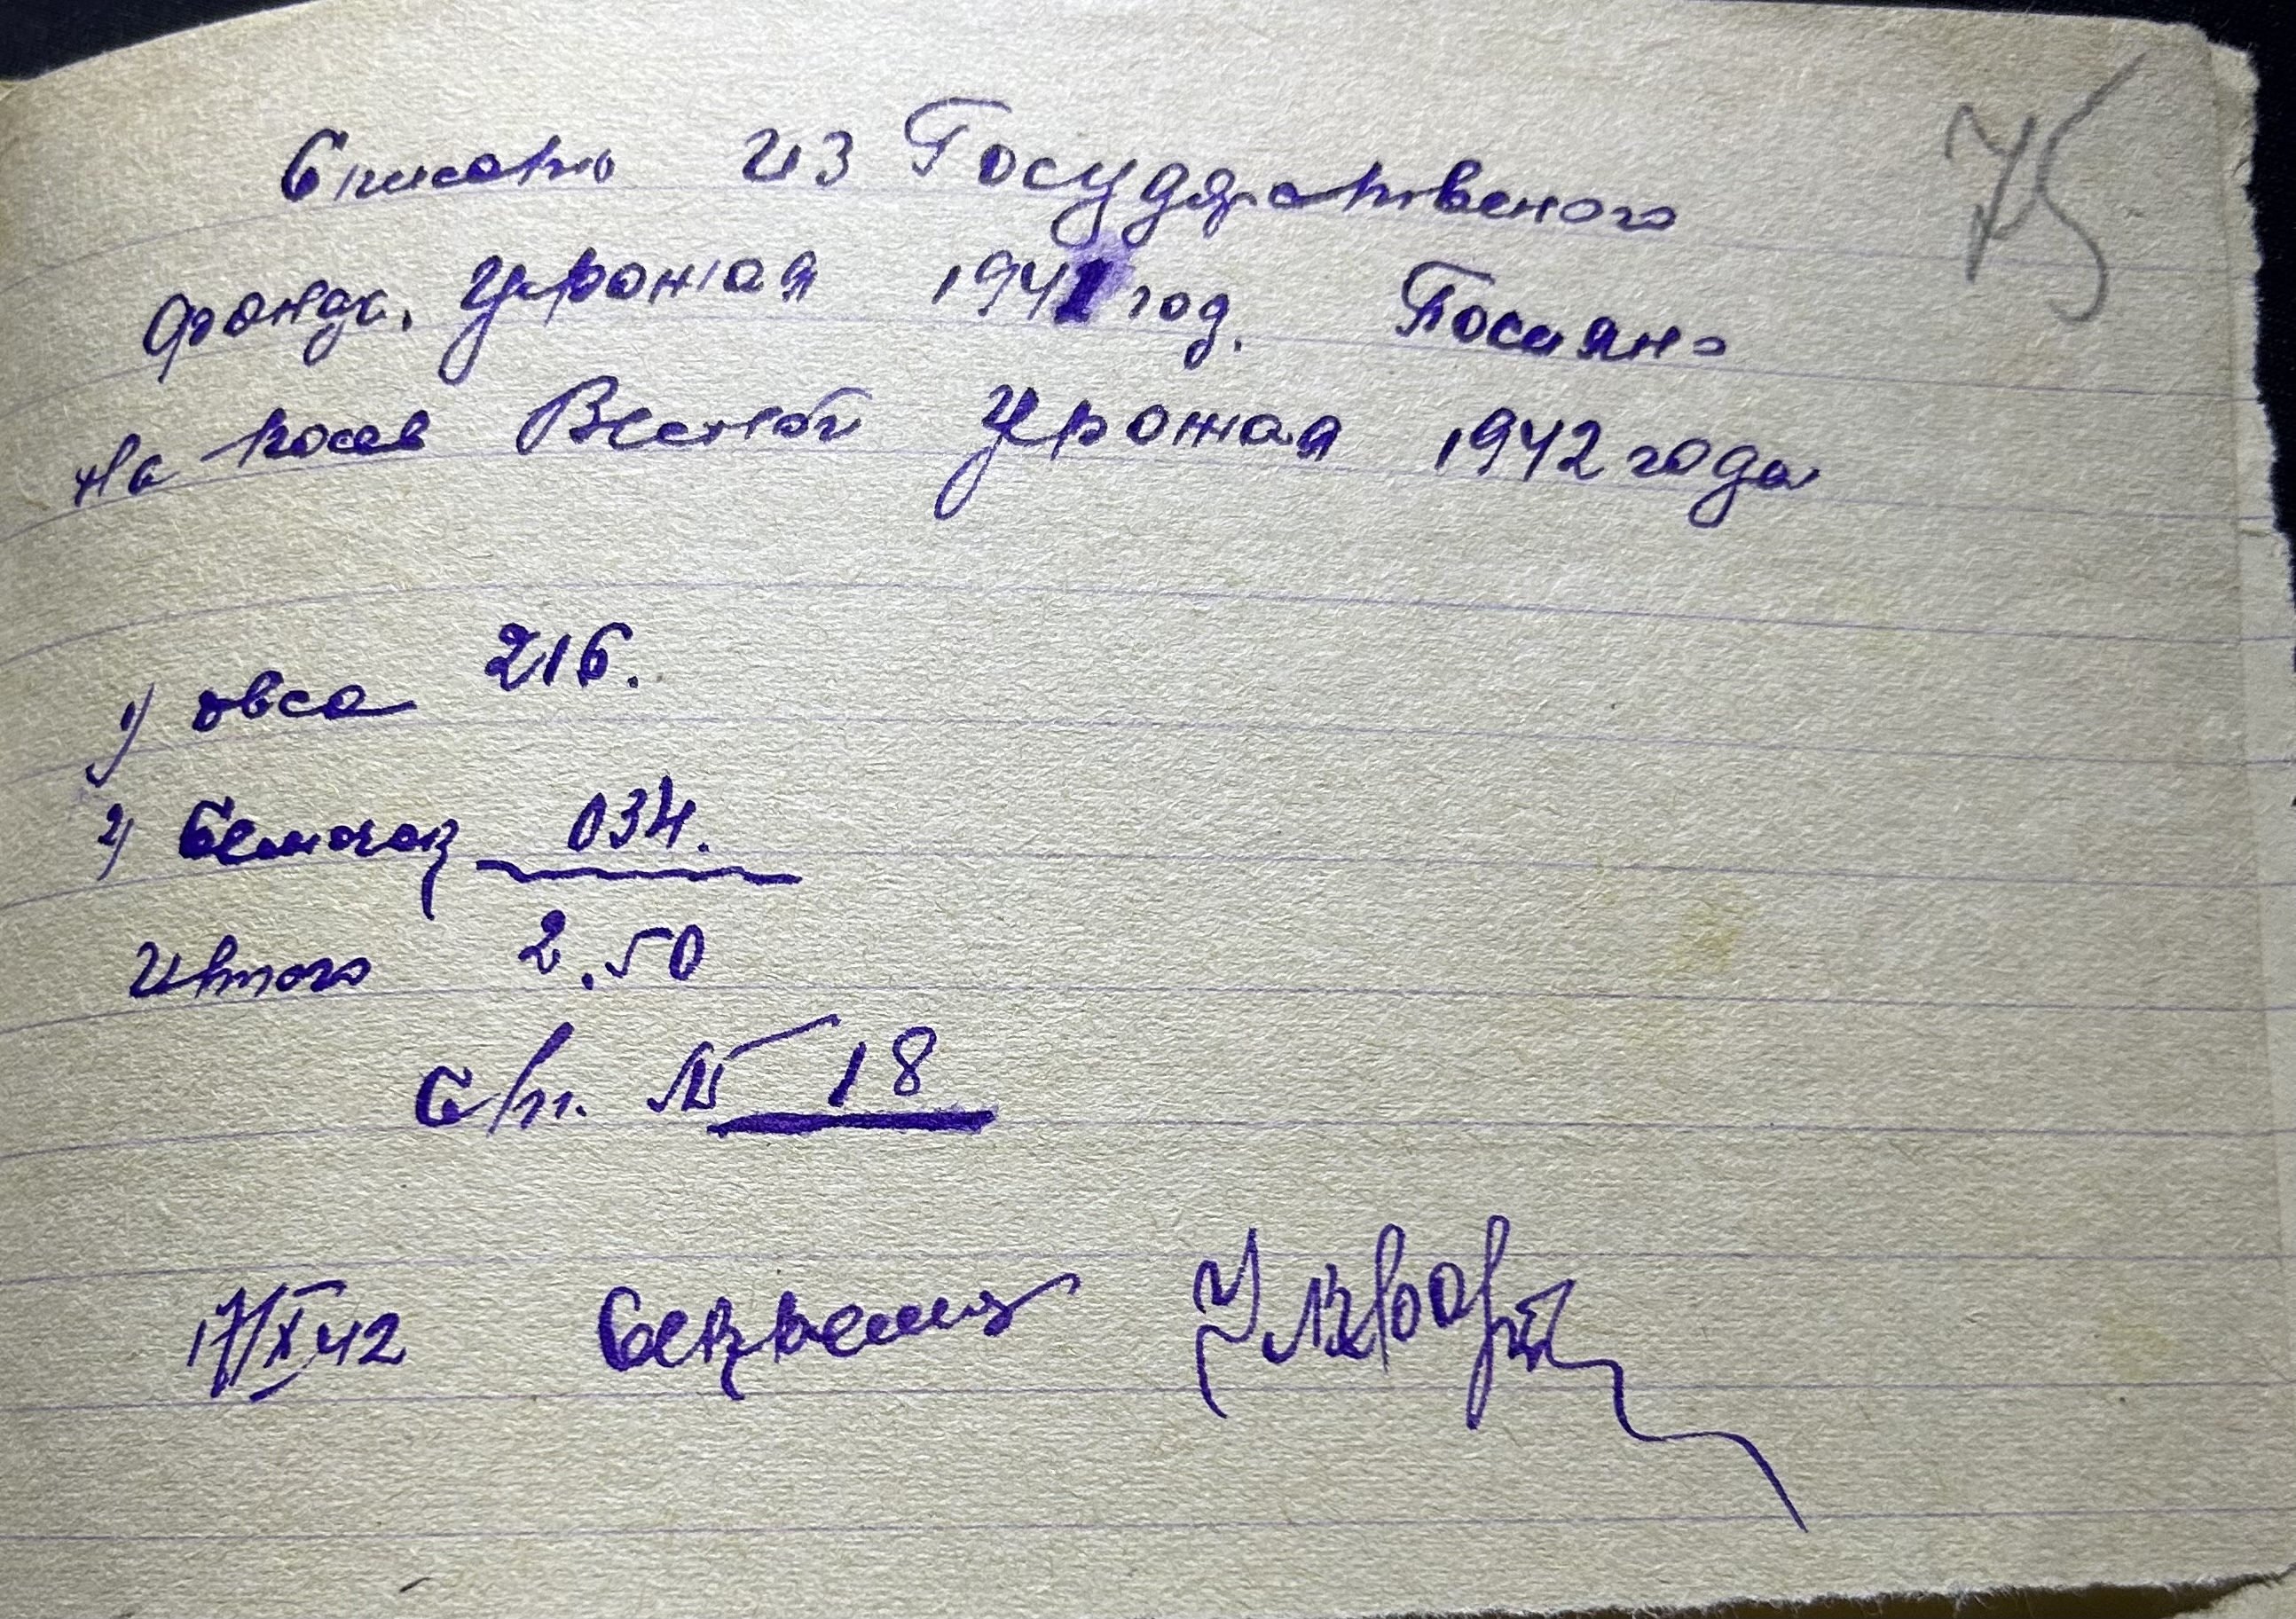 75
Списать из Государственого
фонда. Урожая 1941 год. Посеяно
на посев Весной урожая 1942 года
1) овса 216.
2) 034.
Итого 2.50
С/п. № 18
17/X 42